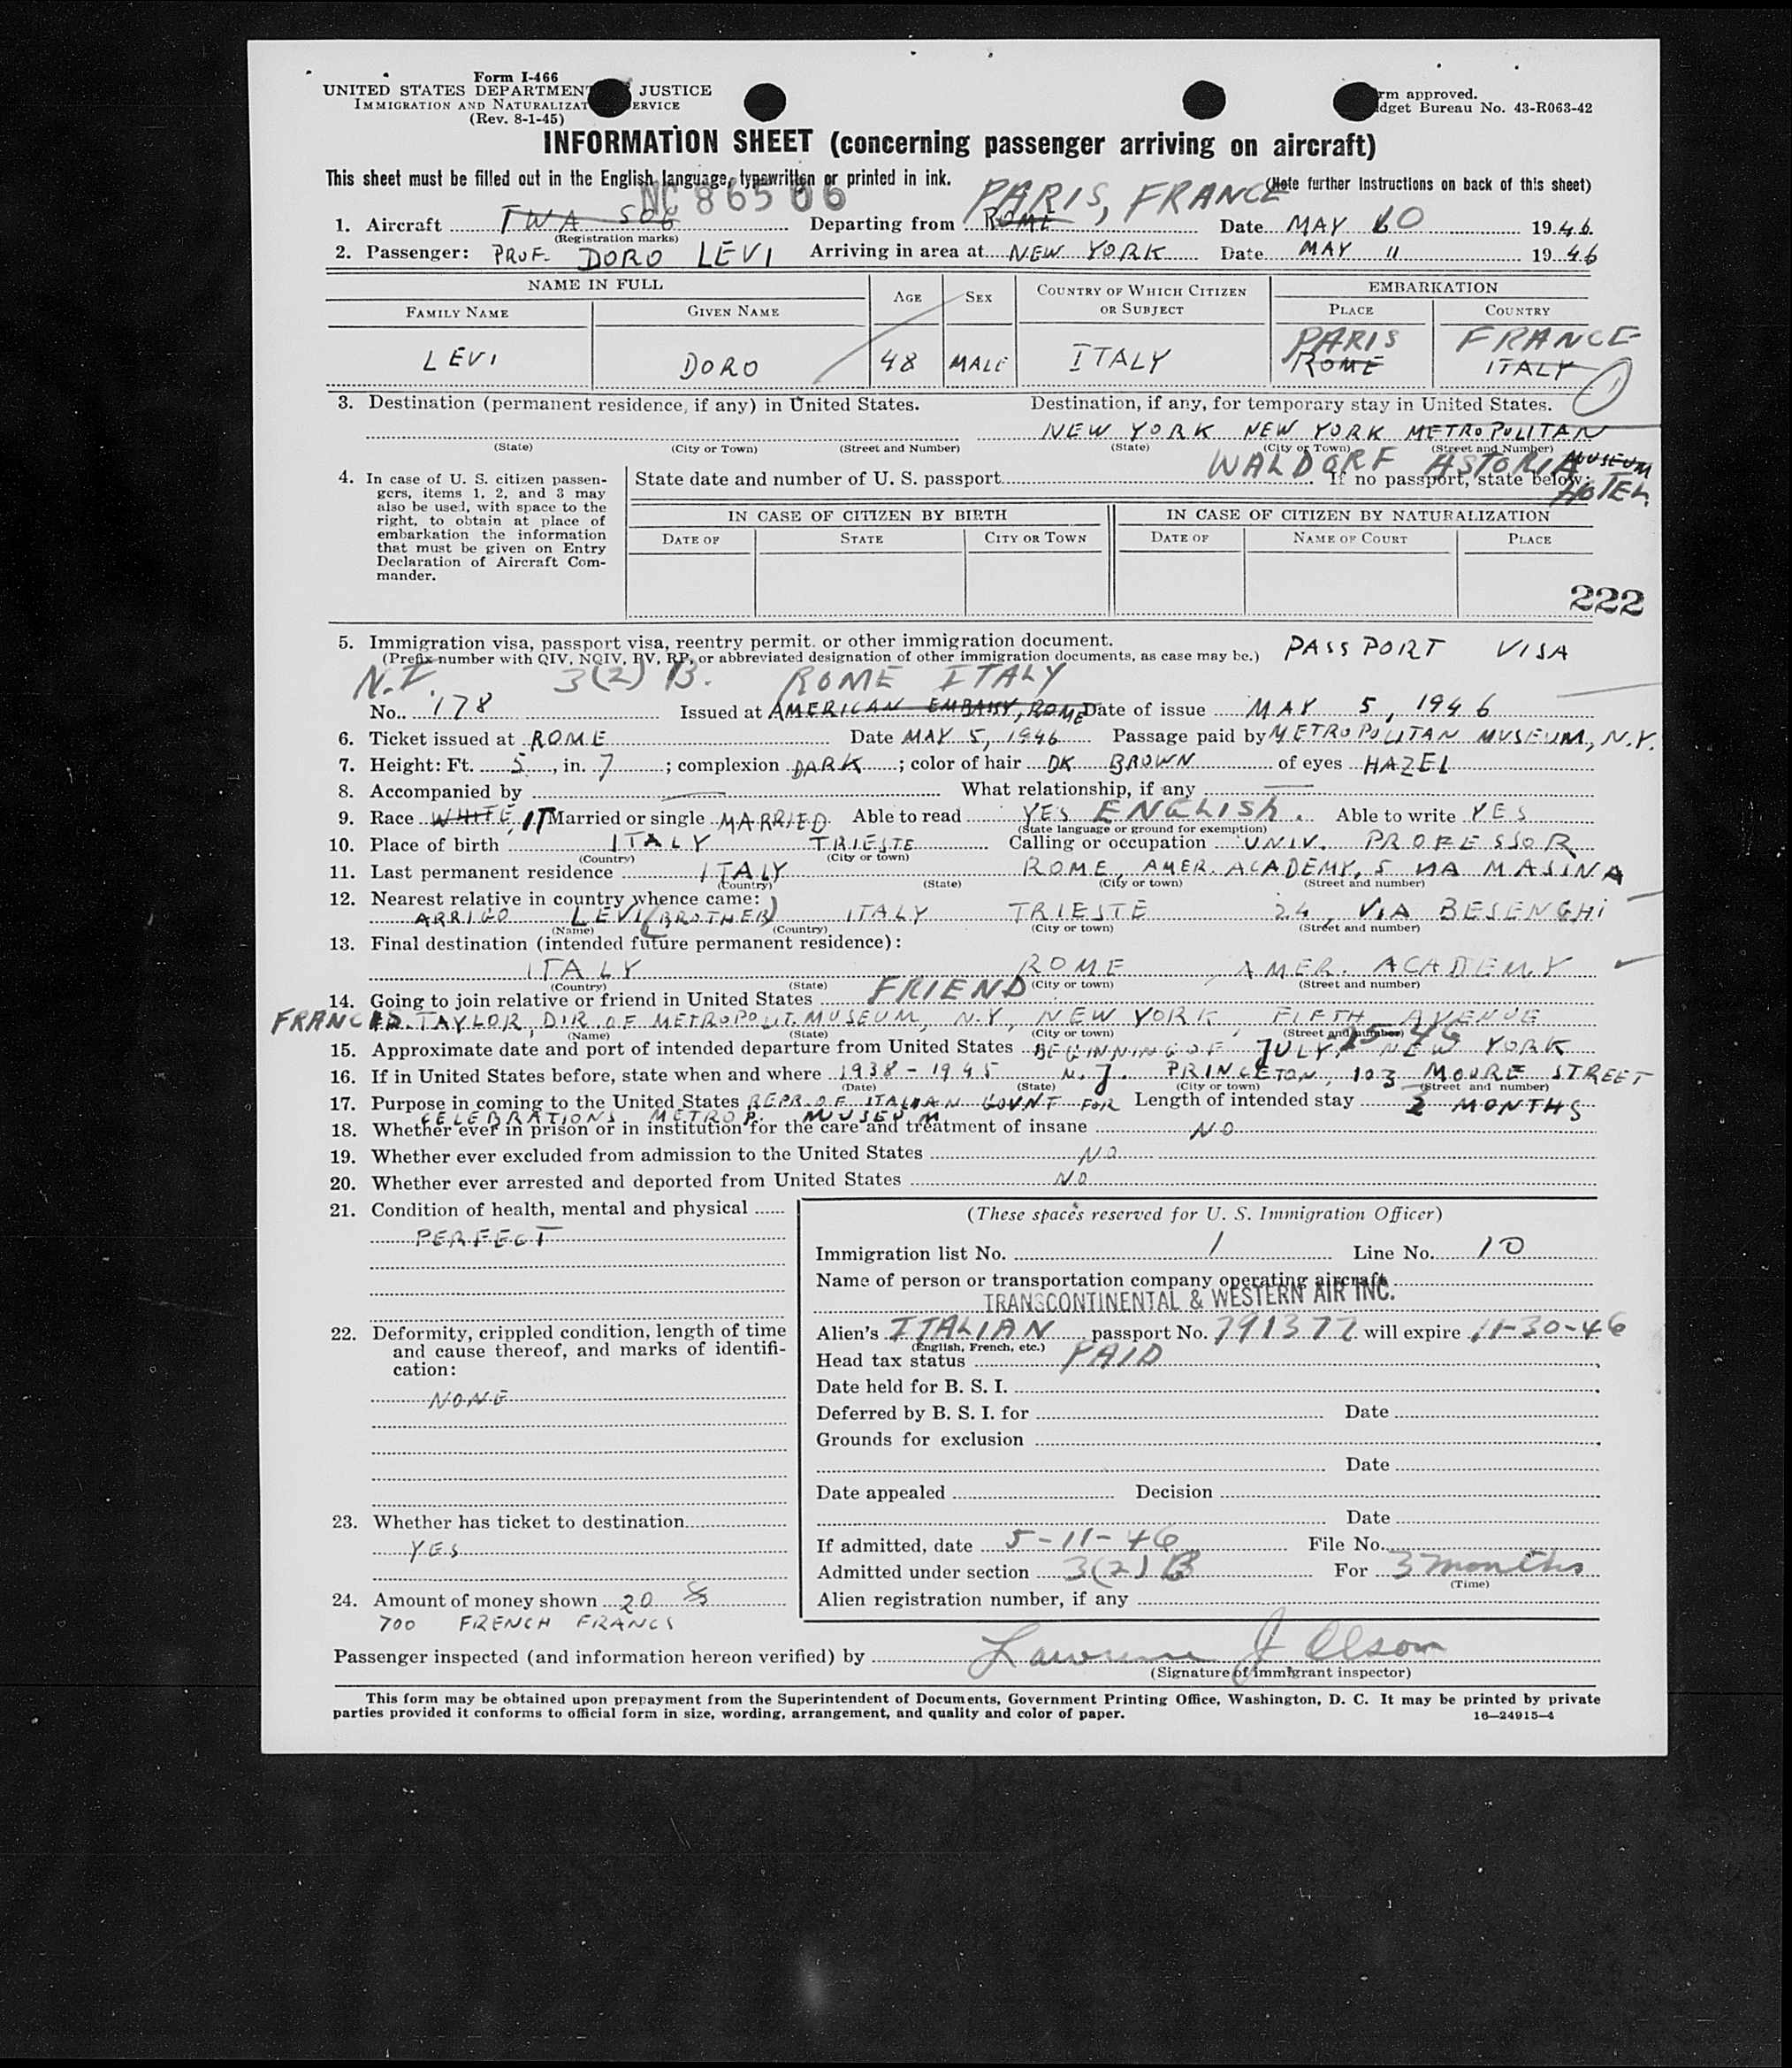 Form I-466
UNITED STATES DEPARTMENT JUSTICE
IMMIGRATION AND NATURALIZAT ERVICE
(Rev. 8-1-45)
rm approved.
dget Bureau No. 43-R063-42
INFORMATION SHEET (concerning passenger arriving on aircraft)
This sheet must be filled out in the English language, typewritten or printed in ink. (Note further instructions on back of this sheet)
NC 86506 PARIS, FRANCE
1. Aircraft TWA 506 Departing from ROME Date MAY 10 1946
(Registration marks)
2. Passenger: PROF. DORO LEVI Arriving in area at NEW YORK Date MAY 11 1946
NAME IN FULL AGE SEX COUNTRY OF WHICH CITIZEN OR SUBJECT EMBARKATION
FAMILY NAME GIVEN NAME PLACE COUNTRY
PARIS FRANCE
LEVI DORO 48 MALE ITALY ROME ITALY
1
3. Destination (permanent residence, if any) in United States. Destination, if any, for temporary stay in United States.
NEW YORK NEW YORK METROPOLITAN
(State) (City or Town) (Street and Number) (State) (City or Town) (Street and Number)
MUSEUM
WALDORF ASTORIA HOTEL
4. In case of U. S. citizen passengers, items 1, 2, and 3 may also be used, with space to the right, to obtain at place of embarkation the information that must be given on Entry Declaration of Aircraft Commander.
State date and number of U. S. passport If no passport, state below:
IN CASE OF CITIZEN BY BIRTH IN CASE OF CITIZEN BY NATURALIZATION
DATE OF STATE CITY OR TOWN DATE OF NAME OF COURT PLACE
222
5. Immigration visa, passport visa, reentry permit, or other immigration document. PASSPORT VISA
(Prefix number with QIV, NQIV, PV, RP, or abbreviated designation of other immigration documents, as case may be.)
N.I. 3(2) B. ROME ITALY
No. 178 Issued at AMERICAN EMBASSY, ROME Date of issue MAY 5, 1946
6. Ticket issued at ROME Date MAY 5, 1946 Passage paid by METROPOLITAN MUSEUM, N.Y.
7. Height: Ft. 5, in. 7; complexion DARK; color of hair DK BROWN of eyes HAZEL
8. Accompanied by — What relationship, if any —
9. Race WHITE, IT Married or single MARRIED Able to read YES ENGLISH. Able to write YES
(State language or ground for exemption)
10. Place of birth ITALY TRIESTE Calling or occupation UNIV. PROFESSOR
(Country) (City or town)
11. Last permanent residence ITALY ROME, AMER. ACADEMY, 5 VIA MASINA
(Country) (State) (City or town) (Street and number)
12. Nearest relative in country whence came:
ARRIGO LEVI (BROTHER) ITALY TRIESTE 24, VIA BESENGHI
(Name) (Country) (City or town) (Street and number)
13. Final destination (intended future permanent residence):
ITALY ROME AMER. ACADEMY
(Country) (State) (City or town) (Street and number)
14. Going to join relative or friend in United States FRIEND
FRANCIS TAYLOR, DIR. OF METROPOLIT. MUSEUM, N.Y., NEW YORK, FIFTH AVENUE
(Name) (State) (City or town) (Street and number)
15. Approximate date and port of intended departure from United States BEGINNING OF JULY, NEW YORK
16. If in United States before, state when and where 1938 - 1945 N.J. PRINCETON, 103 MOORE STREET
(Date) (State) (City or town) (Street and number)
17. Purpose in coming to the United States REPR. OF ITALIAN GOVNT FOR Length of intended stay 2 MONTHS
CELEBRATIONS METROP. MUSEUM
18. Whether ever in prison or in institution for the care and treatment of insane NO
19. Whether ever excluded from admission to the United States NO
20. Whether ever arrested and deported from United States NO
21. Condition of health, mental and physical
PERFECT
22. Deformity, crippled condition, length of time and cause thereof, and marks of identification:
NONE
23. Whether has ticket to destination
YES
24. Amount of money shown 20 $
700 FRENCH FRANCS
(These spaces reserved for U. S. Immigration Officer)
Immigration list No. 1 Line No. 10
Name of person or transportation company operating aircraft
TRANSCONTINENTAL & WESTERN AIR INC.
Alien's ITALIAN passport No. 791377 will expire 11-30-46
(English, French, etc.)
Head tax status PAID
Date held for B. S. I.
Deferred by B. S. I. for Date
Grounds for exclusion
Date
Date appealed Decision
Date
If admitted, date 5-11-46 File No.
Admitted under section 3(2) B For 3 months
(Time)
Alien registration number, if any
Passenger inspected (and information hereon verified) by Lawrence J Olson
(Signature of immigrant inspector)
This form may be obtained upon prepayment from the Superintendent of Documents, Government Printing Office, Washington, D. C. It may be printed by private
parties provided it conforms to official form in size, wording, arrangement, and quality and color of paper. 16—24915-4